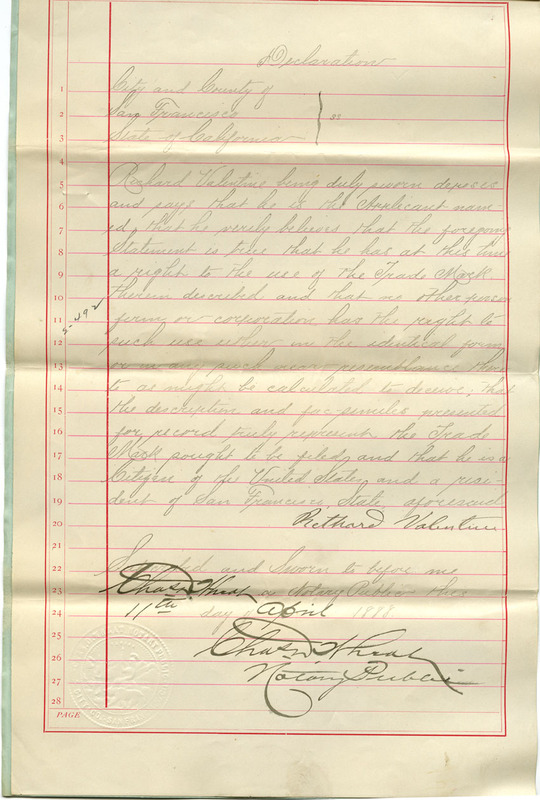 Declaration
1 City and County of
2 San Francisco } ss
3 State of California
4
5 Richard Valentine being duly sworn deposes
6 and says that he is the Applicant nam-
7 ed, that he verily believes that the foregoing
8 Statement is true that he has at this time
9 a right to the use of the Trade Mark
10 therein described and that no other person
11 firm or corporation has the right to
12 such use either in the identical form
13 or in any such near resemblance there
14 to as might be calculated to deceive; that
15 the description and fac-similes presented
16 for record truly represent the Trade
17 Mark sought to be filed, and that he is a
18 Citizen of the United States and a resi-
19 dent of San Francisco, State aforesaid
20 Richard Valentine
21
22 Subscribed and Sworn to before me
23 a Notary Public this
24 11th day of April 1888
25
26
27 Notary Public
28
PAGE
5-492